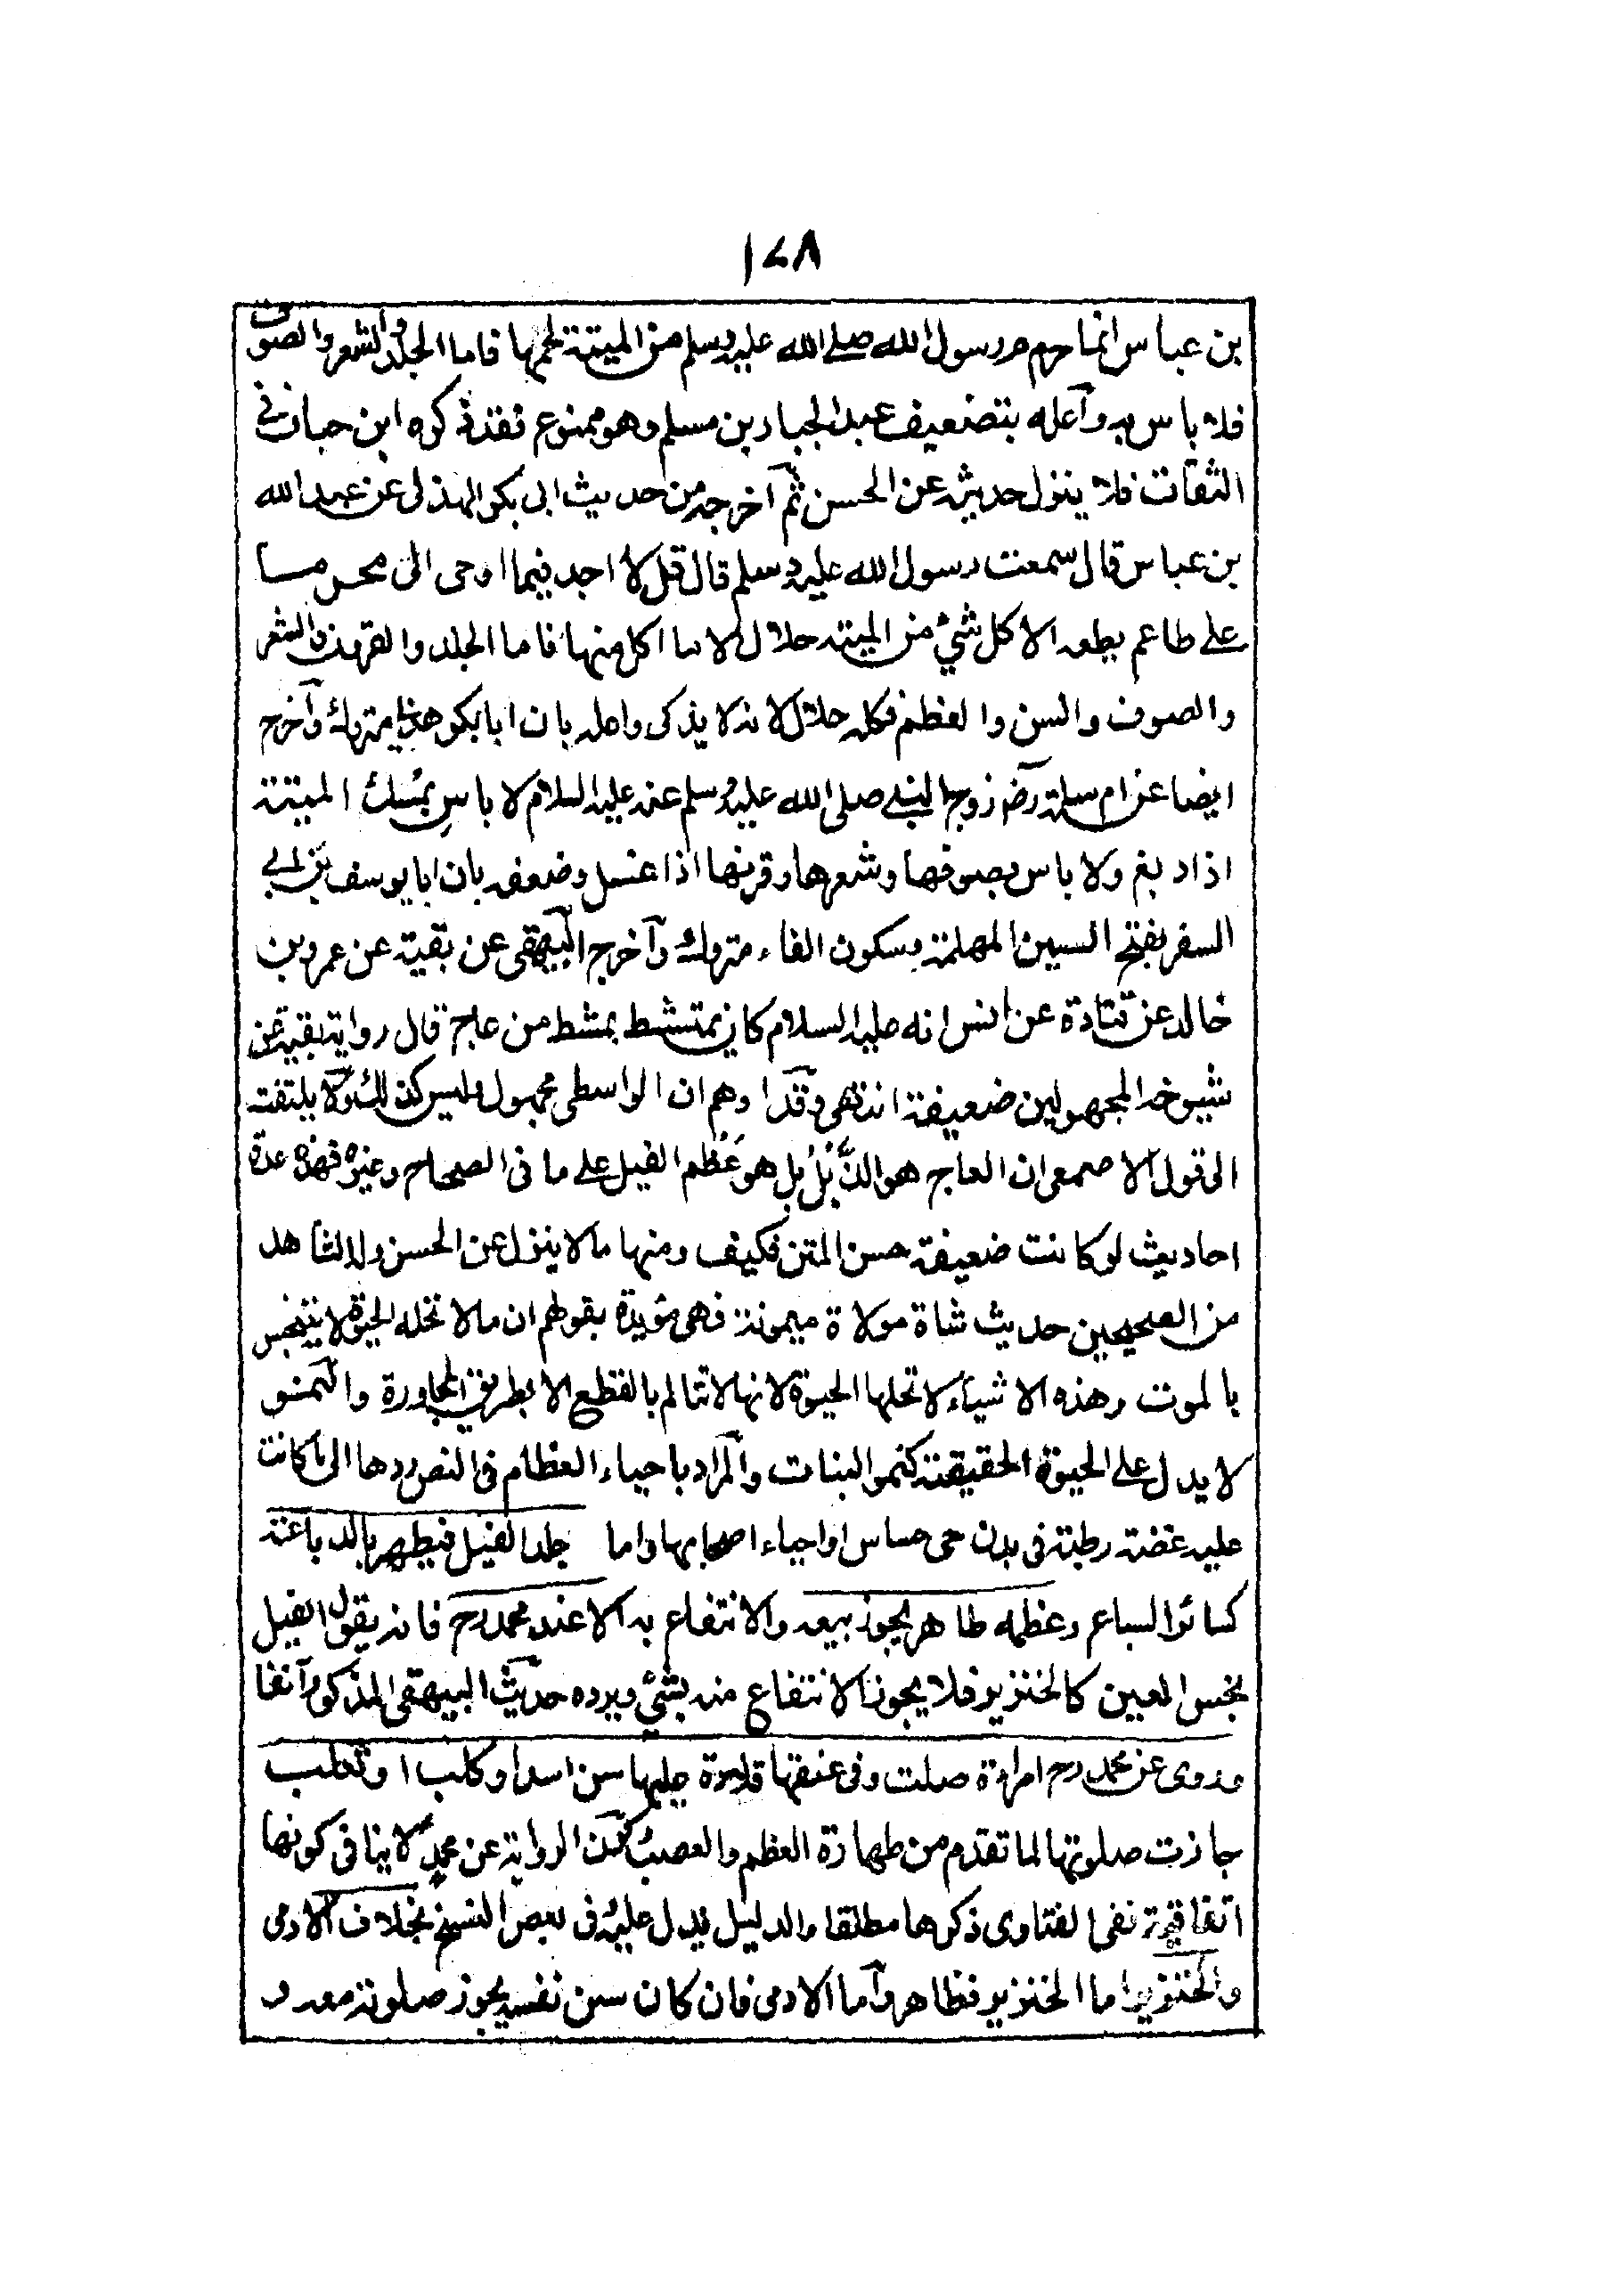 ١٤٨
بن عباس انما حرم رسول الله صلے الله عليه وسلم من الميتة لحمها فاما الجلد والشعر والصوف
فلا باس به وآعله بتضعيف عبد الجبار بن مسلم وهو ممنوع فقد ذكره ابن حبان في
الثقات فلا ينزل حديثه عن الحسن ثم آخرجه من حديث ابى بكر الهذلى عن عبد الله
بن عباس قال سمعت رسول الله عليه وسلم قال قل لا اجد فيما اوحى الى محرما
علے طاعم يطعمه الا كل شيء من الميتة حلال الا ما اكل منها فاما الجلد والقرون والشعر
والصوف والسن والعظم فكله حلال لانه لا يذكى واعله بان ابا بكر هذا متروك وآخرج
ايضا عن ام سلمة رض زوج النبے صلى الله عليه وسلم عنه عليه السلام لا باس بمسك الميتة
اذا دبغ ولا باس بصوفها وشعرها وقرنها اذا غسل وضعفه بان ابا يوسف بن ابے
السفر بفتح السين المهملة وسكون الفاء متروك وآخرج البيهقى عن بقية عن عمرو بن
خالد عن قتادة عن انس انه عليه السلام كان يمتشط بمشط من عاج قال رواية بقية عن
شيوخه المجهولين ضعيفة انتهى وقدا وهم ان الواسطى مجهول وليس كذلك ولا يلتفت
الى قول الاصمعى ان العاج هو الذَّبْلُ بل هو عَظْم الفيل علے ما فى الصحاح وغيره فهذه عدة
احاديث لو كانت ضعيفة حسن المتن فكيف ومنها ما لا ينزل عن الحسن وله الشاهد
من الصحيحين حديث شاة مولاة ميمونة فهى مؤيدة بقولهم ان ما لا تحله الحيوة لا يتنجس
بالموت وهذه الاشياء لا تحلها الحيوة لانها لا تتالم بالقطع الا بطريق المجاورة والنمو
لا يدل على الحيوة الحقيقة كنمو النبات والمراد باحياء العظام فى النص ردها الى ما كانت
عليه غضة رطبة فى بدن حى حساس او احياء اصحابها واما جلد الفيل فيطهر بالدباغة
كسائر السباع وعظمه طاهر يجوز بيعه والانتفاع به الا عند محمد رح فانه يقول الفيل
نجس العين كالخنزير فلا يجوز الانتفاع منه بشيء ويرده حديث البيهقى المذكور آنفا
وروى عن محمد رح امراءة صلت وفى عنقها قلادة عليها سن اسد او كلب او ثعلب
جازت صلوتها لما تقدم من طهارة العظم والعصب لكن الرواية عن محمد لا ينافى كونها
اتفاقية ففى الفتاوى ذكرها مطلقا والدليل يدل عليه فى بعض النسخ بخلاف الادمى
والخنزير اما الخنزير فظاهر وآما الادمى فان كان سن نفسه يجوز صلوته معه و